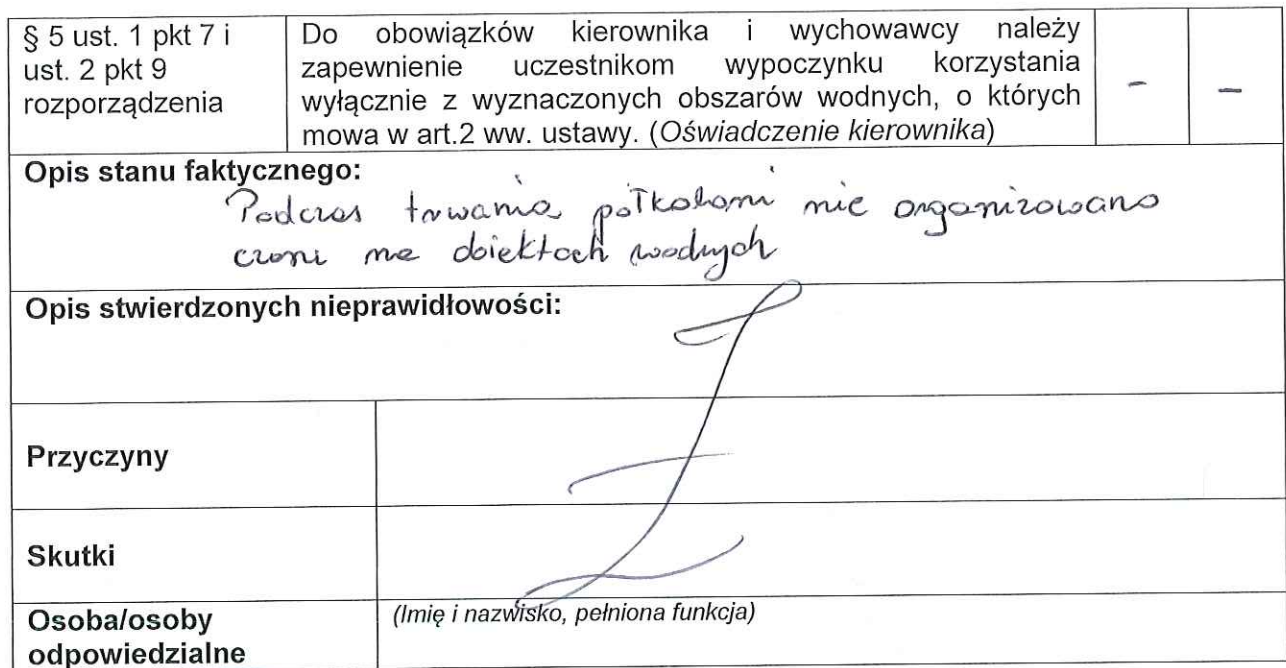 § 5 ust. 1 pkt 7 i
ust. 2 pkt 9
rozporządzenia
Do obowiązków kierownika i wychowawcy należy
zapewnienie uczestnikom wypoczynku korzystania
wyłącznie z wyznaczonych obszarów wodnych, o których
mowa w art.2 ww. ustawy. (Oświadczenie kierownika)
- -
Opis stanu faktycznego:
Podczas trwania półkoloni nie organizowano
na obiektach wodnych
Opis stwierdzonych nieprawidłowości:
Przyczyny
Skutki
Osoba/osoby
odpowiedzialne
(Imię i nazwisko, pełniona funkcja)